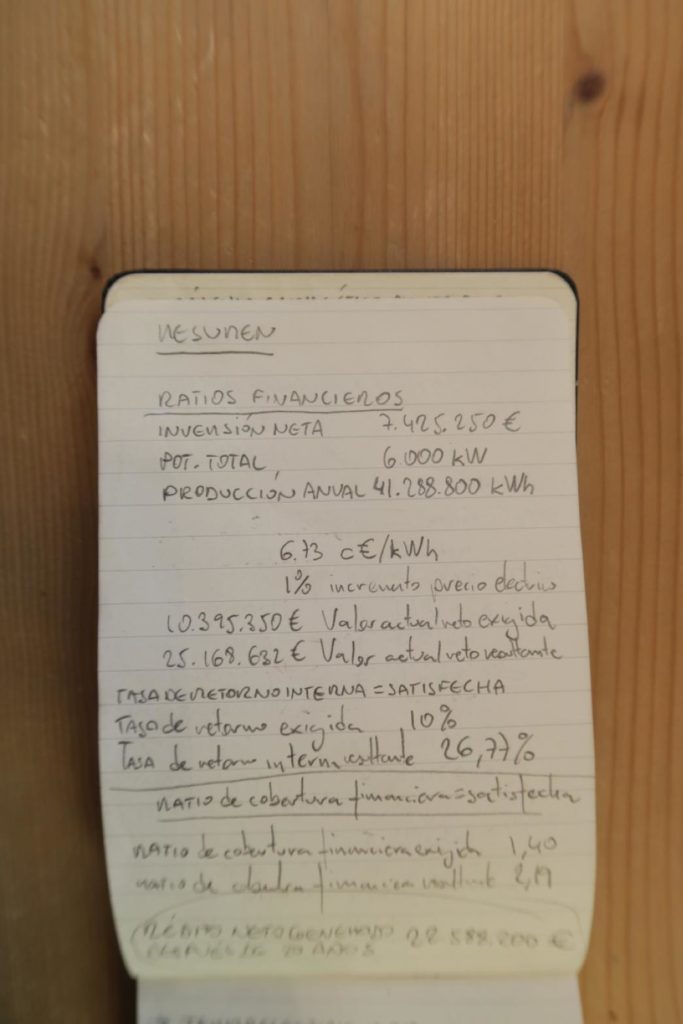 RESUMEN
RATIOS FINANCIEROS
INVERSIÓN NETA 7.425.250 €
POT. TOTAL 6.000 kW
PRODUCCIÓN ANUAL 41.288.800 kWh
6.73 c€/kWh
1% incremento precio electrico
10.395.350 € Valor actual neto exigida
25.168.632 € Valor actual neto resultante
TASA DE RETORNO INTERNA = SATISFECHA
TASA de retorno exigida 10%
TASA de retorno interna resultante 26,77%
RATIO de cobertura financiera = satisfecha
RATIO de cobertura financiera exigida 1,40
RATIO de cobertura financiera resultante
NETO GENERADO 22.588.200 €
DESPUÉS DE 20 AÑOS